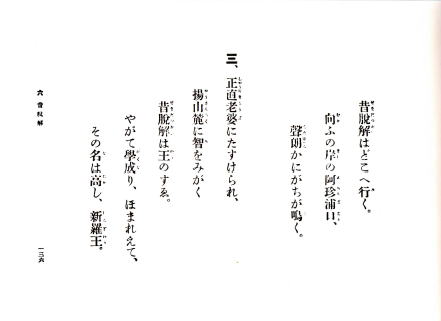 昔脫解はどこへ行く。
向ふの岸の阿珍浦口、
聲朗かにがちが鳴く。
三、正直老婆にたすけられ、
揚山麓に智をみがく
昔脫解は王のすゑ。
やがて學成り、ほまれえて、
その名は高し、新羅王。
六 昔脫解
一三六